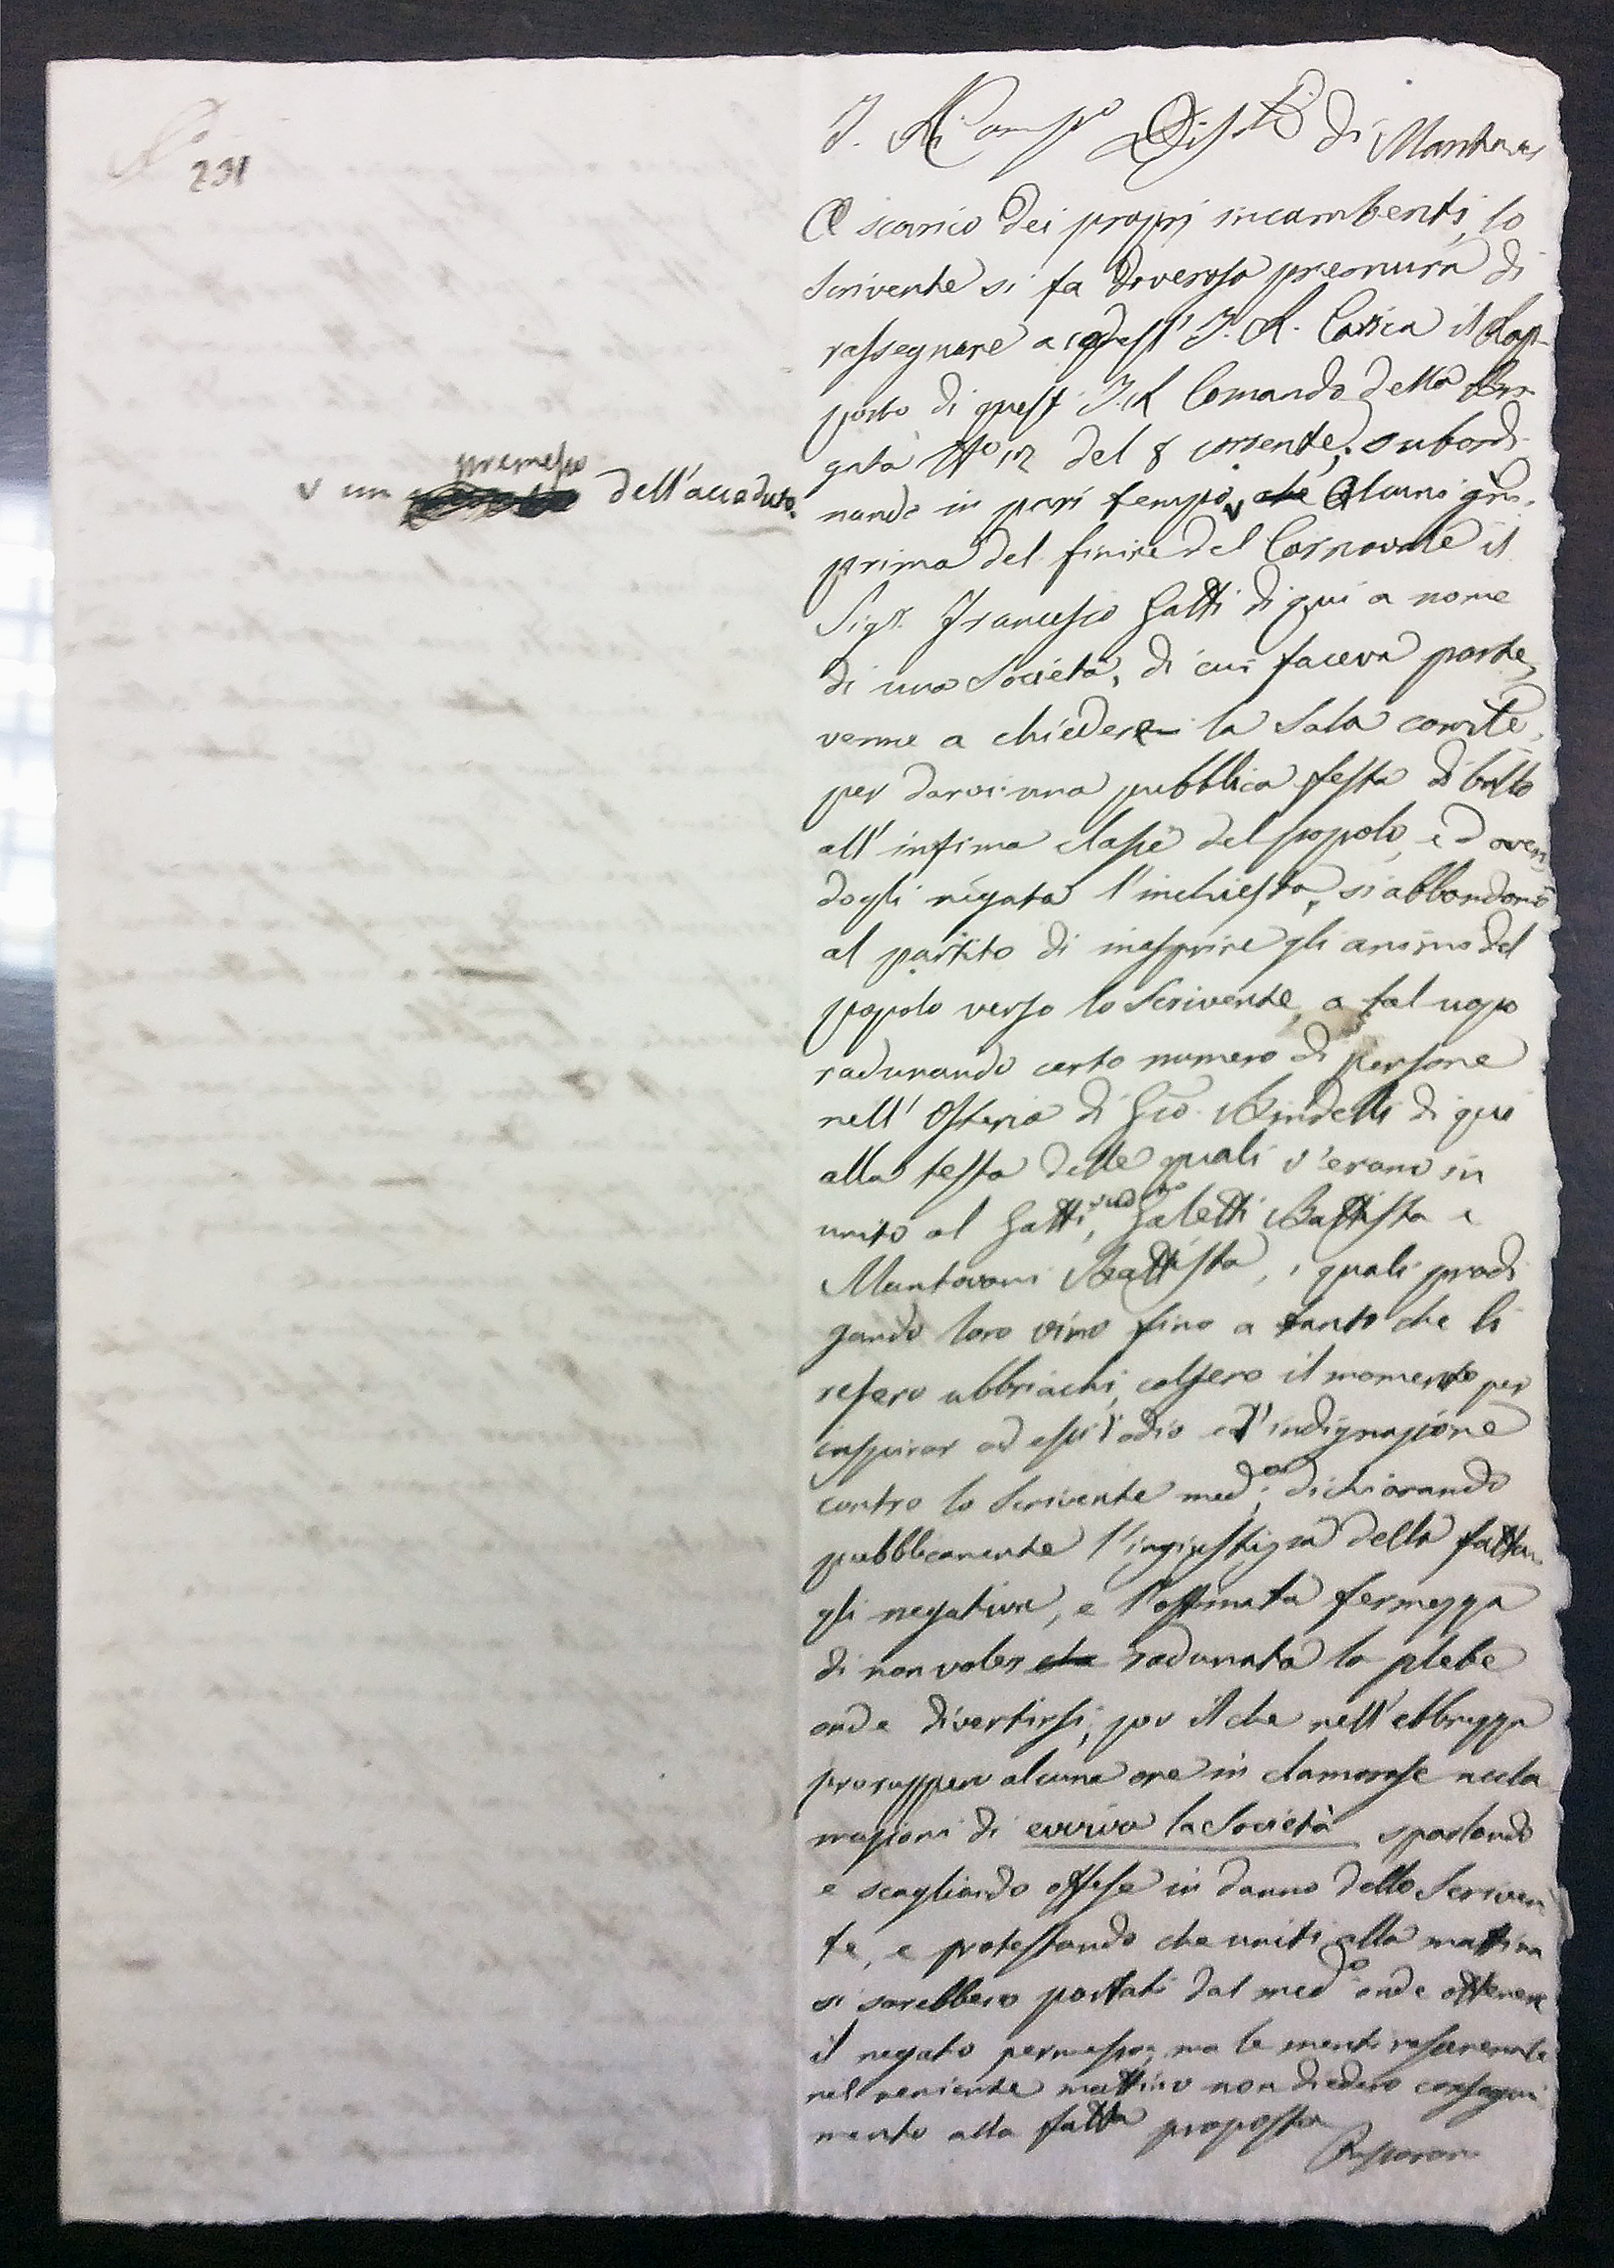 N.º
231
I. R. Commss.º Dist.le di Mantova
A scarico dei proprj incombenti, lo
scrivente si fa doverosa premura di
rassegnare a codest' I. R. Carica il Rap-
porto di quest' I. R. Comando della Bri-
gata N.º 12 del 8 corrente; subordi-
nando in pari tempo, v che Alcuni gni.
v un premesso dell'accaduto.
prima del finire del Carnovale il
Sigr. Francesco Gatti di qui a nome
di una Società, di cui faceva parte,
venne a chiedere la Sala com.le,
per darvi una pubblica festa di ballo
all' infima classe del popolo, ed aven-
dogli negata l'inchiesta, si abbandonò
al partito di inasprire gli animi del
popolo verso lo Scrivente, a tal uopo
radunando certo numero di persone
nell' Osteria di Gio. Bindelli di qui
alla testa delle quali v'erano in
unito al Gatti sud.to, Galetti Battista e
Mantovani Battista, i quali prodi
gando loro vino fino a tanto che li
resero ubbriachi, colsero il momento per
inspirar ad essi l'odio ed l'indignazione
contro lo Scrivente med.º; dichiarando
pubblicamente l'ingiustizia della fatta-
gli negativa, e l'ostinata fermezza
di non voler che radunata la plebe
onde divertirsi; per il che nell'ebbrezza
proruppero alcune ore in clamorose accla
mazioni di evviva la Società sparlando
e scagliando offese in danno dello Scriven
te, e protestando che uniti alla mattina
si sarebbero portati dal med.º onde ottenere
il negato permesso; ma le menti rasserenate
nel veniente mattino non diedero consegui
mento alla fatta proposta